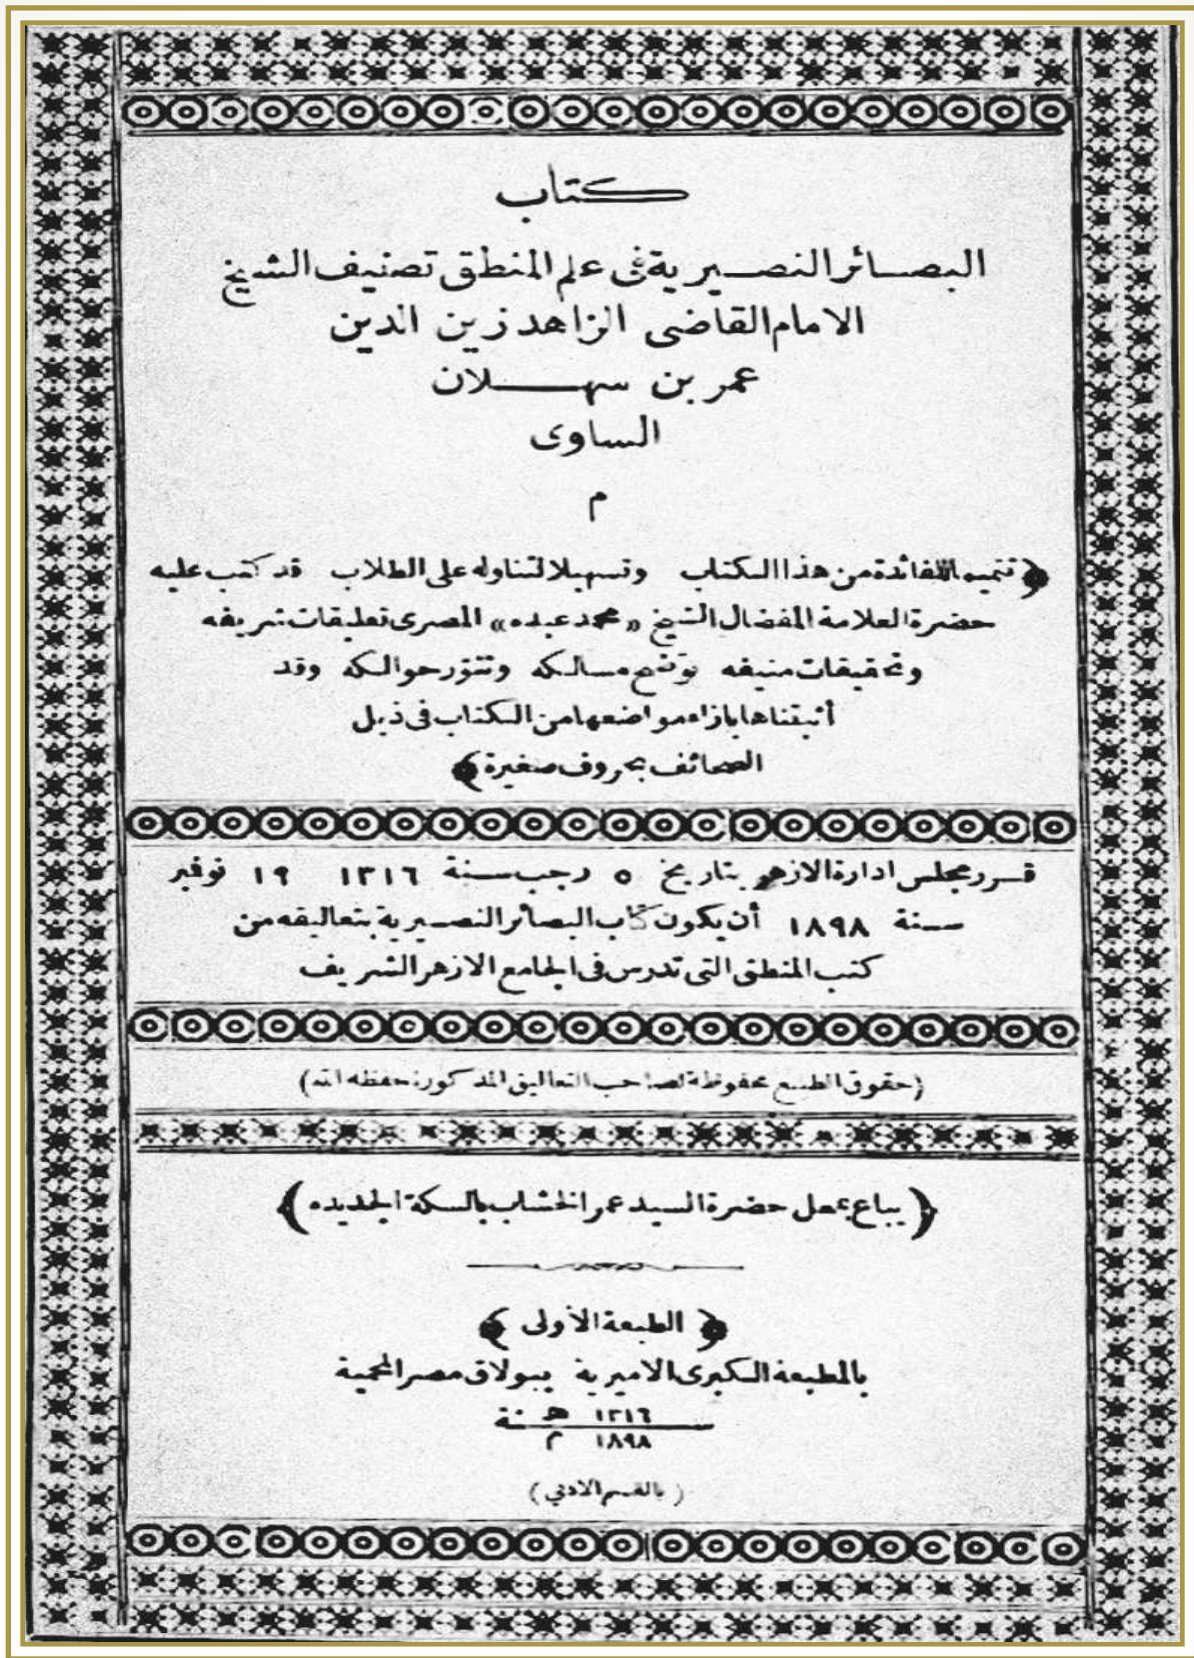 كتاب
البصائر النصيرية فى علم المنطق تصنيف الشيخ
الامام القاضى الزاهد زين الدين
عمر بن سهلان
الساوى
م
تتميما للفائدة من هذا الكتاب وتسهيلا لتناوله على الطلاب قد كتب عليه
حضرة العلامة المفضال الشيخ «محمد عبده» المصرى تعليقات شريفه
وتحقيقات منيفه توضح مسالكه وتنور حوالكه وقد
أثبتناها بازاء مواضعها من الكتاب فى ذيل
الصحائف بحروف صغيرة
قرر مجلس ادارة الازهر بتاريخ ٥ رجب سنة ١٣١٦ ١٩ نوفمبر
سنة ١٨٩٨ أن يكون كتاب البصائر النصيرية بتعاليقه من
كتب المنطق التى تدرس فى الجامع الازهر الشريف
(حقوق الطبع محفوظة لصاحب التعاليق المذكور حفظه الله)
(يباع بمحل حضرة السيد عمر الخشاب بالسكة الجديده)
الطبعة الأولى
بالمطبعة الكبرى الاميرية ببولاق مصر المحمية
سنة ١٣١٦ هـ
١٨٩٨ م
(بالقسم الادبي)